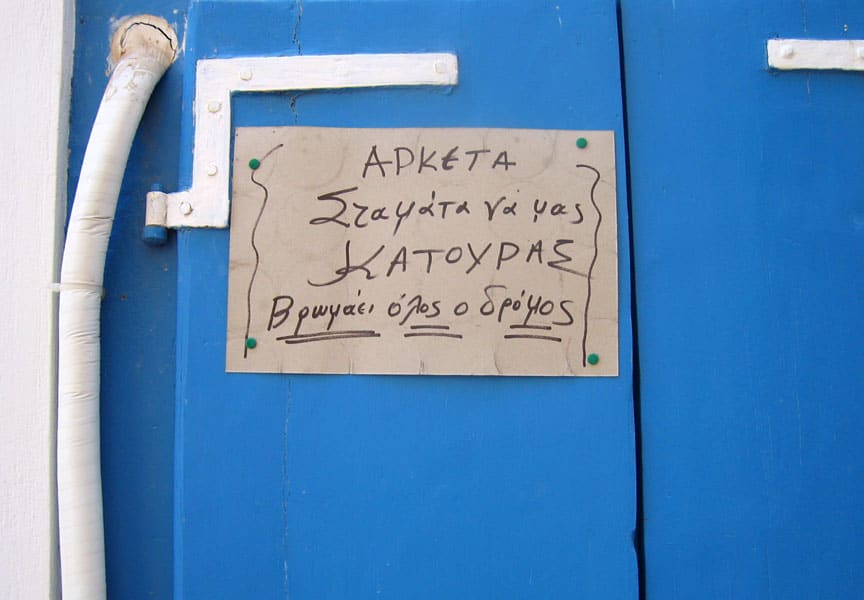 ΑΡΚΕΤΑ
Σταμάτα νά μας
ΚΑΤΟΥΡΑΣ
Βρωμάει όλος ο δρόμος